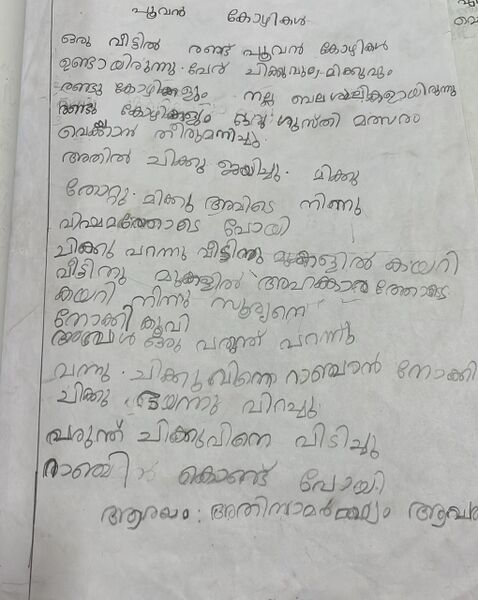 പൂവൻ കോഴികൾ
ഒരു വീട്ടിൽ രണ്ട് പൂവൻ കോഴികൾ
ഉണ്ടായിരുന്നു. പേര് ചിക്കുവും, മിക്കുവും
രണ്ടു കോഴികളും നല്ല ബലശാലികളായിരുന്നു
രണ്ടു കോഴികളും ഒരു ഗുസ്തി മത്സരം
വെക്കാൻ തീരുമനിച്ചു.
അതിൽ ചിക്കു ജയിച്ചു. മിക്കു
തോറ്റു. മിക്കു അവിടെ നിന്നു
വിഷമത്തോടെ പോയി
ചിക്കു പറന്നു വീട്ടിന്നു മുകളിൽ കയറി
വീടിനു മുകളിൽ അഹങ്കാരത്തോടെ
കയറി നിന്നു സൂര്യനെ
നോക്കി കൂവി
അപ്പോൾ ഒരു പരുന്ത് പറന്നു
വന്നു. ചിക്കുവിനെ റാഞ്ചാൻ നോക്കി
ചിക്കു ഭയന്നു വിറച്ചു.
പരുന്ത് ചിക്കുവിനെ പിടിച്ചു
റാഞ്ചി കൊണ്ട് പോയി.
ആശയം: അതിസാമർത്ഥ്യം